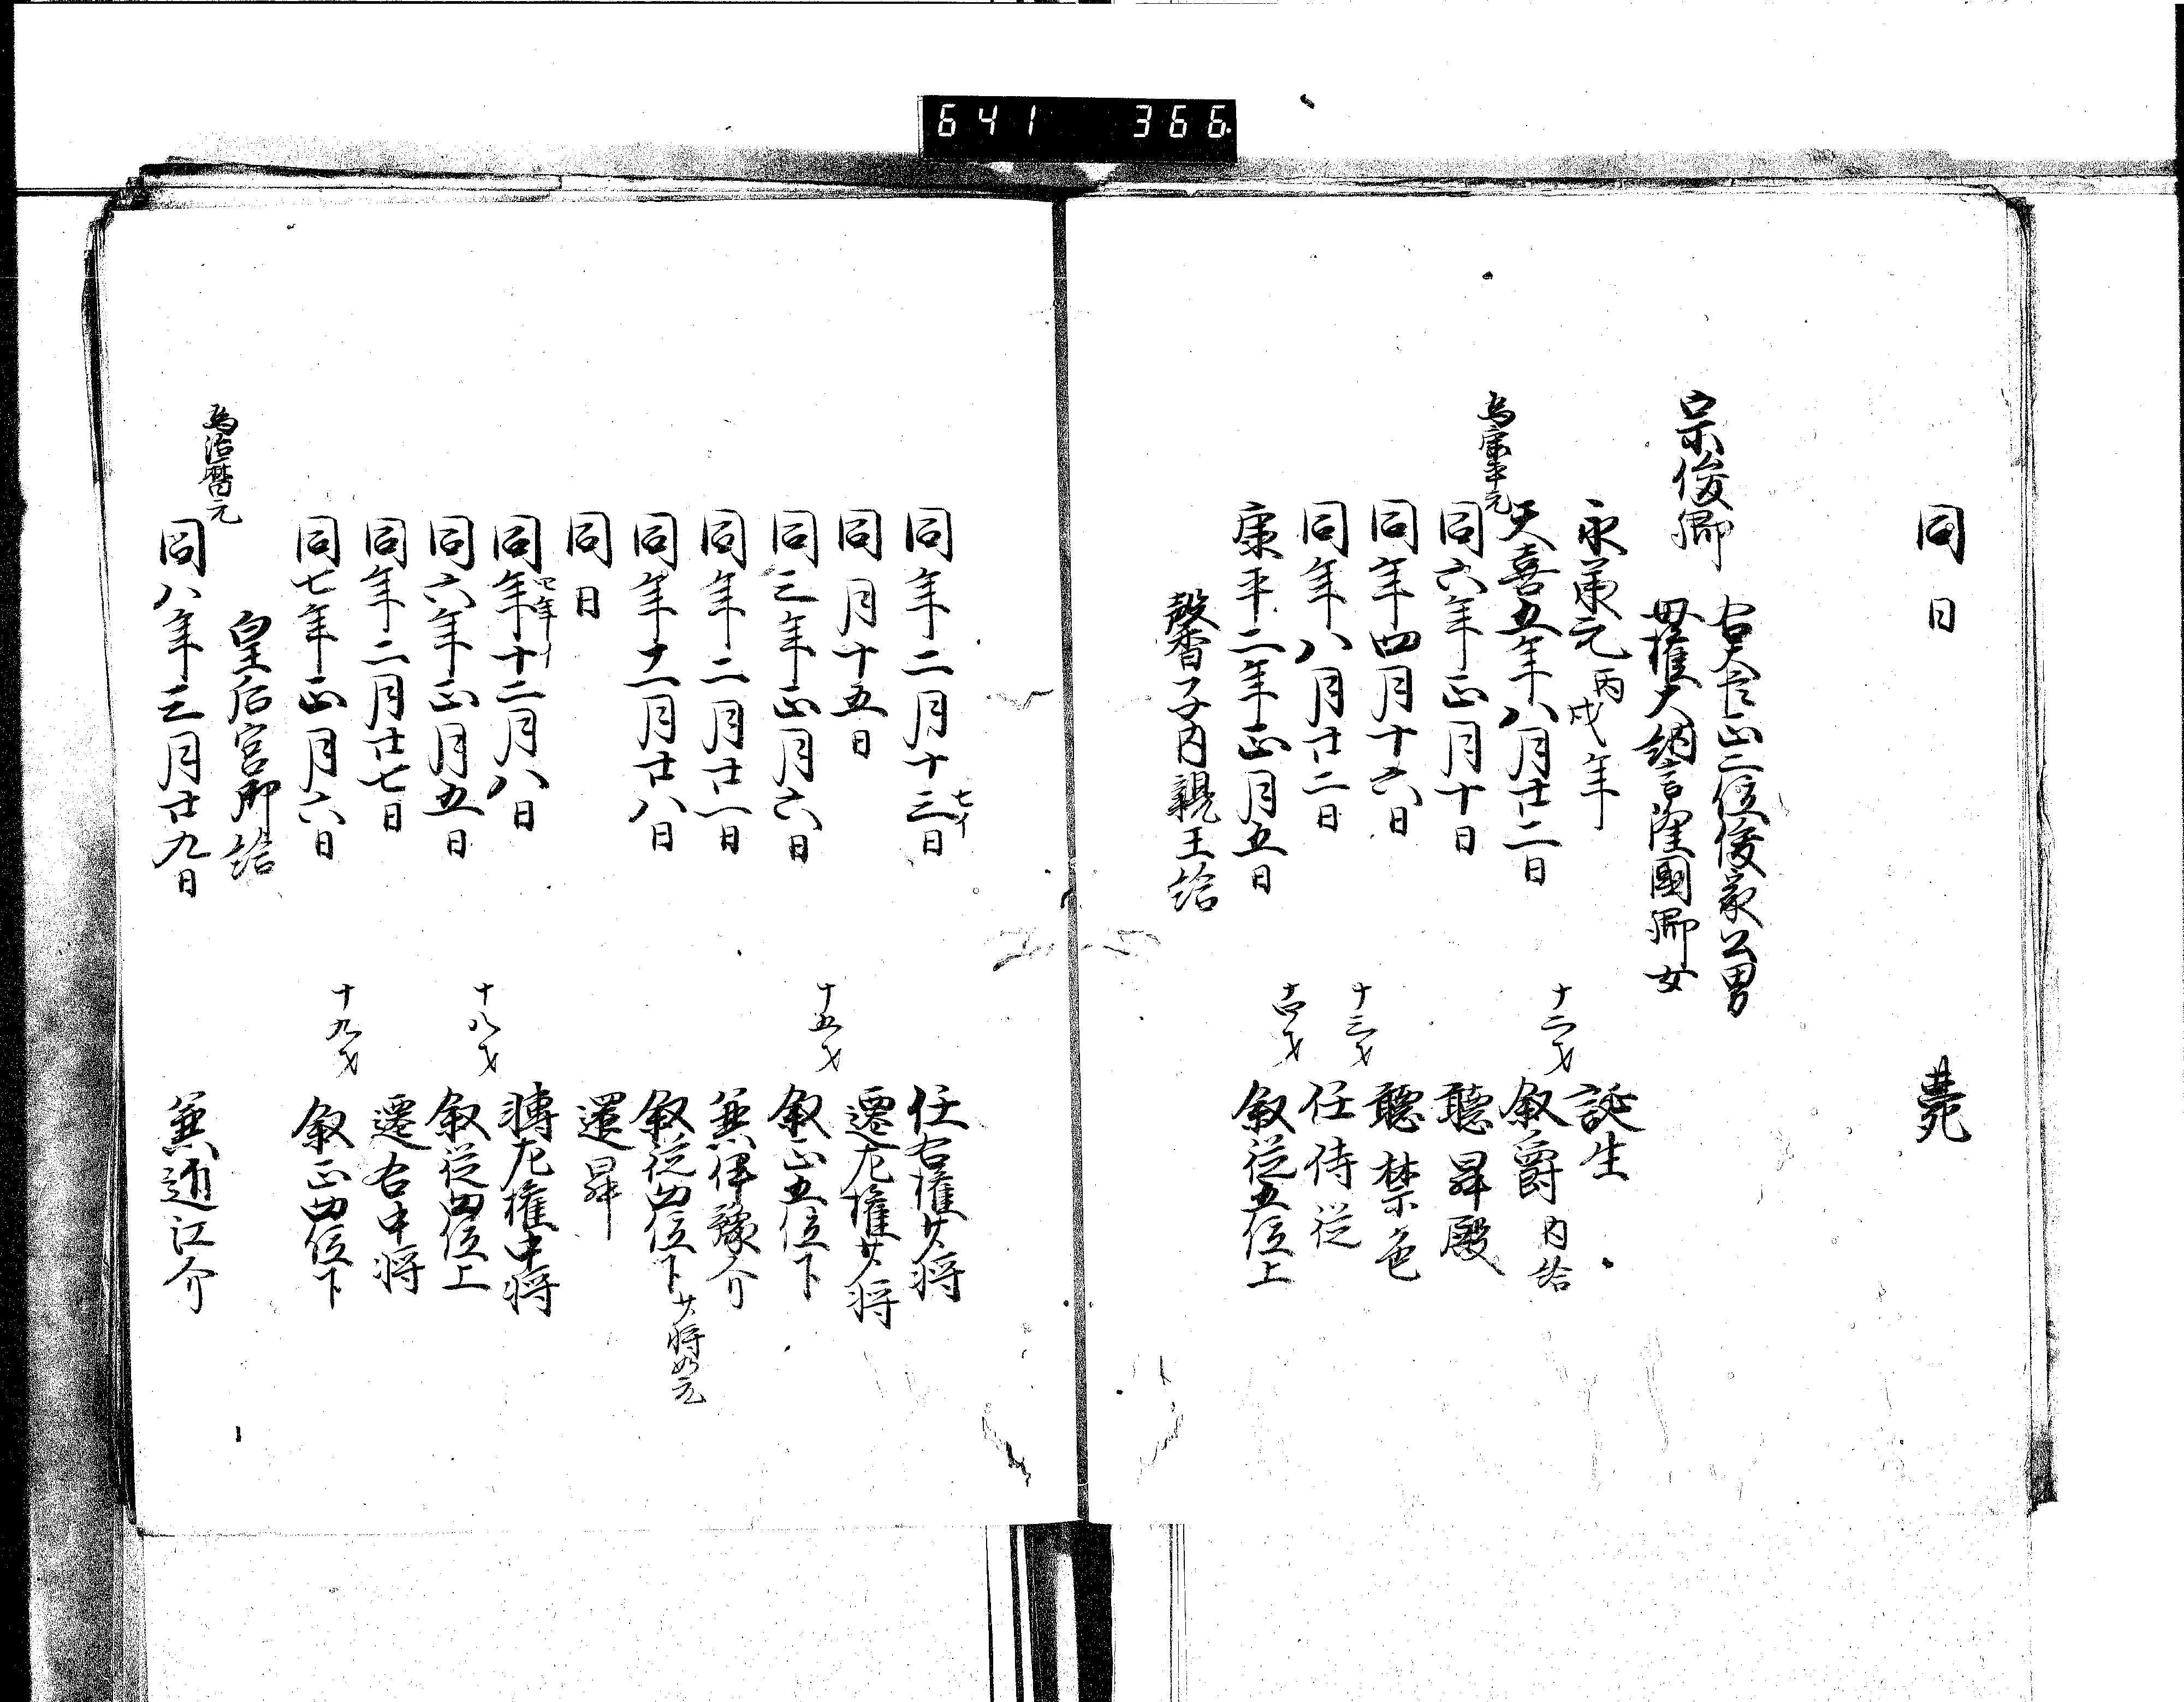 641 366
同日 薨
宗俊卿 右大臣正二位俊家公男
母権大納言隆国卿女
永承元丙戌年 誕生
天喜五年八月廿二日 十二才 叙爵 内給
為康平元
同六年正月十日 聴昇殿
同年四月十六日 聴禁色
同年八月廿二日 十三才 任侍従
康平二年正月五日 十四才 叙従五位上
馨子内親王給
同年二月十三日 七イ 任右権少将
同月十五日 遷左権少将
同三年正月六日 十五才 叙正五位下
同年二月廿一日 兼伊豫介
同年十一月廿八日 叙従四位下 少将如元
同日 還昇
同年十二月八日 四年イ 轉左権中将
同六年正月五日 十八才 叙従四位上
同年二月廿七日 遷右中将
同七年正月六日 十九才 叙正四位下
皇后宮御給
為治暦元
同八年三月廿九日 兼近江介